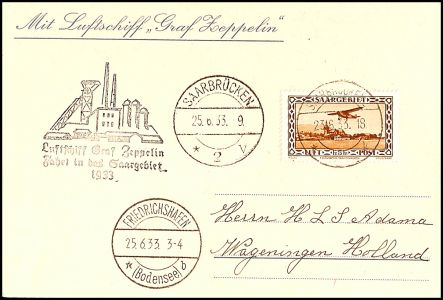 Mit Luftschiff „Graf Zeppelin"
SAARBRÜCKEN
25.6.33. 9.
* 2 v
SAARGEBIET
POST
Luftschiff Graf Zeppelin
Fahrt in das Saargebiet
1933
FRIEDRICHSHAFEN
25.6.33. 3-4
* (Bodensee) b
Herrn H L S Adama
Wageningen Holland